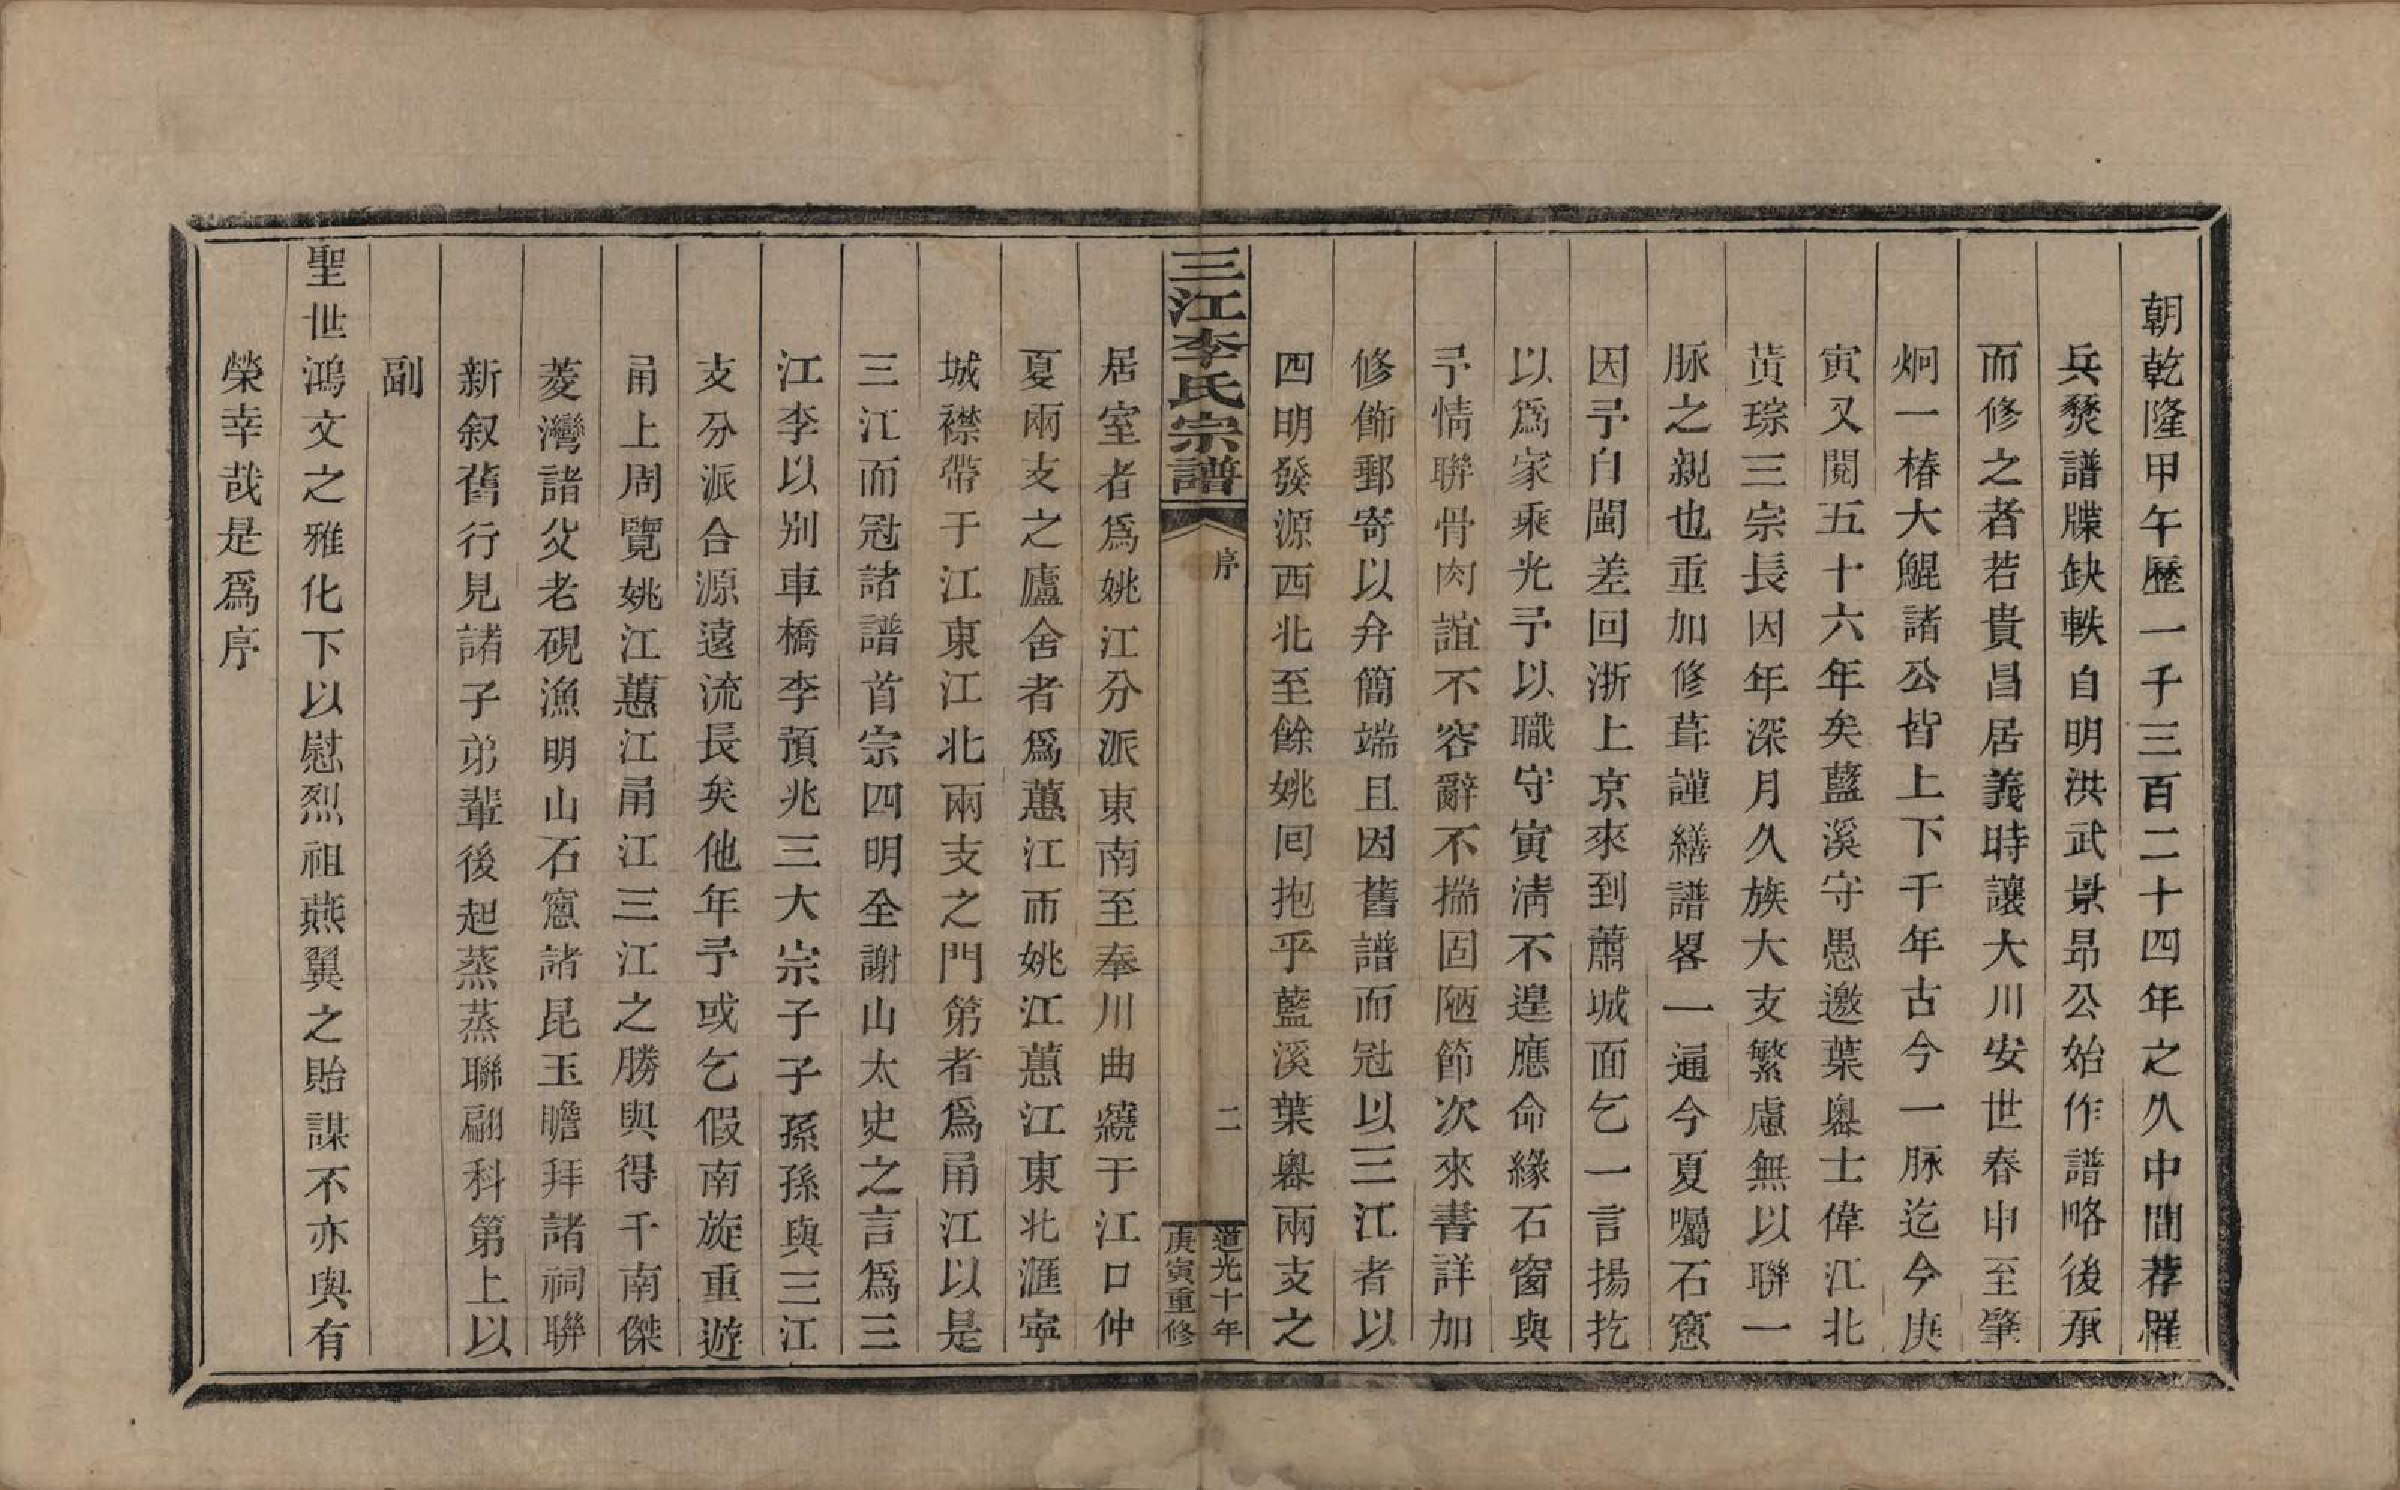 朝乾隆甲午歷一千三百二十四年之久中間荐罹
兵燹譜牒缺軼自明洪武景昂公始作譜略後承
而修之者若貴昌居義時讓大川安世春申至肇
炯一椿大鯤諸公皆上下千年古今一脉迄今庚
寅又閱五十六年矣藍溪守愚邀葉奧士偉江北
黃琮三宗長因年深月久族大支繁慮無以聯一
脉之親也重加修葺謹繕譜畧一通今夏囑石窻
因予自閩差回浙上京來到蕭城面乞一言揚扢
以爲家乘光予以職守寅清不遑應命緣石窗與
予情聯骨肉誼不容辭不揣固陋節次來書詳加
修飾郵寄以弁簡端且因舊譜而冠以三江者以
四明發源西北至餘姚囘抱乎藍溪葉奧兩支之
三江李氏宗譜
序
二
道光十年
庚寅重修
居室者爲姚江分派東南至奉川曲繞于江口仲
夏兩支之廬舍者爲蕙江而姚江蕙江東北滙寧
城襟帶于江東江北兩支之門第者爲甬江以是
三江而冠諸譜首宗四明全謝山太史之言爲三
江李以别車橋李預兆三大宗子子孫孫與三江
支分派合源遠流長矣他年予或乞假南旋重遊
甬上周覽姚江蕙江甬江三江之勝與得千南傑
菱灣諸父老硯漁明山石窻諸昆玉瞻拜諸祠聯
新叙舊行見諸子弟輩後起蒸蒸聯翩科第上以
副
聖世鴻文之雅化下以慰烈祖燕翼之貽謀不亦與有
榮幸哉是爲序